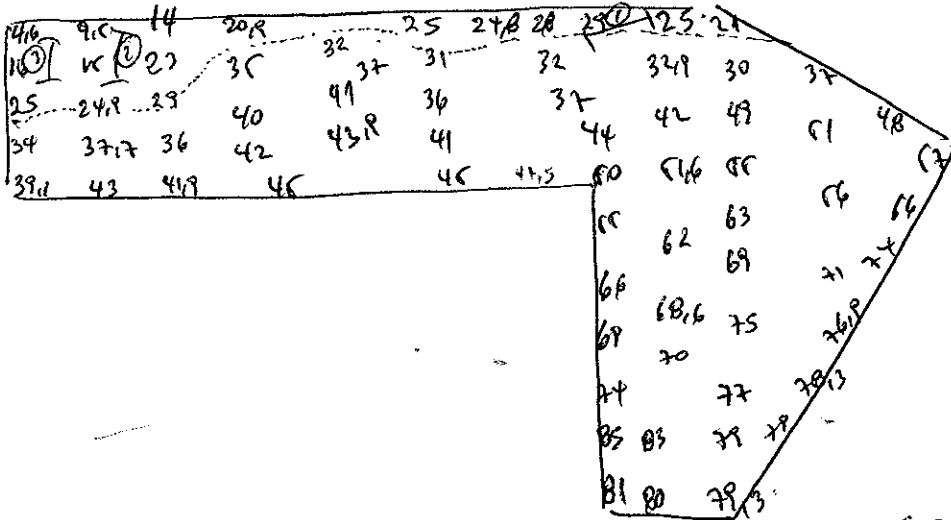 14,6 9,5 14 20,9 25 24,8 28 29 ① 25 21
16 ③ 15 ② 23 35 32 37 31 32 32,9 30 37
25 24,9 29 40 41 36 37 42 49 51 48
34 37,7 36 42 43,9 41 44 57
39,1 43 41,9 45 45 47,5 50 51,6 55 56 66
55 62 63
66 69 71 74
69 68,6 75 76,9
70
74 77 78,3
85 83 79 79
81 80 79,3